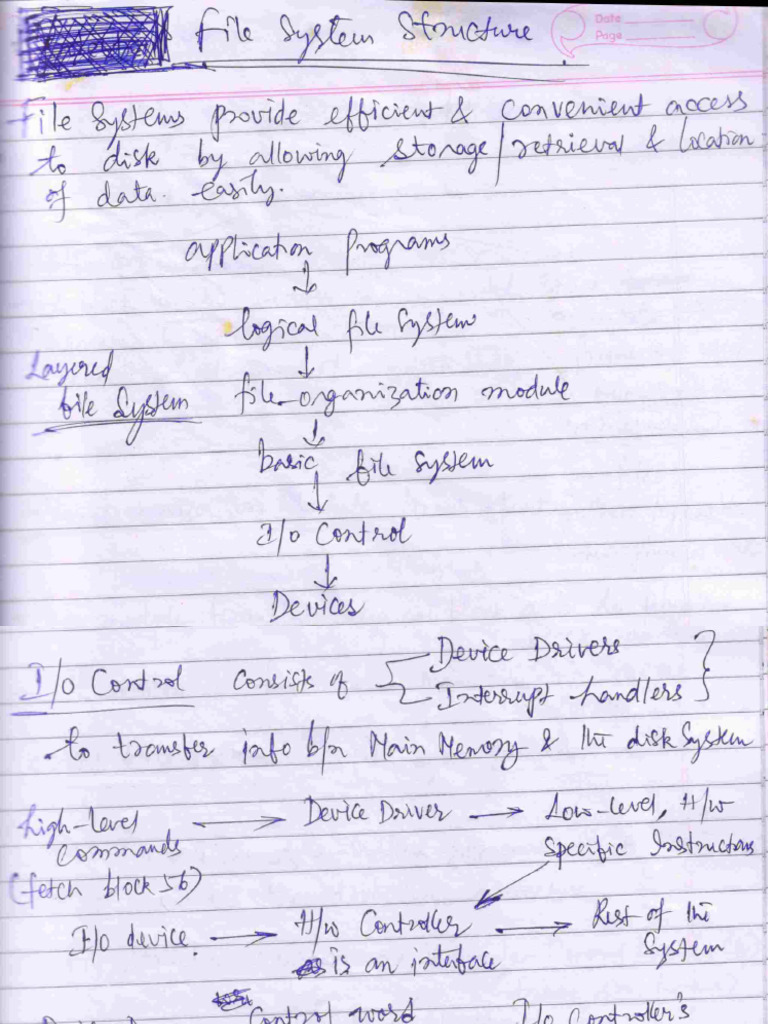 File System Structure
Date
Page
File Systems provide efficient & convenient access
to disk by allowing storage/retrieval & location
of data easily.
application programs
logical file system
Layered
file System
file-organization module
basic file system
I/o Control
Devices
Device Drivers
I/o Control consists of
Interrupt handlers
to transfer info b/n Main Memory & the disk System
high-level Device Driver Low-level, H/w
commands
specific Instructions
(fetch block 56)
I/o device H/w Controller Rest of the
is an interface System
Control word I/o Controller's